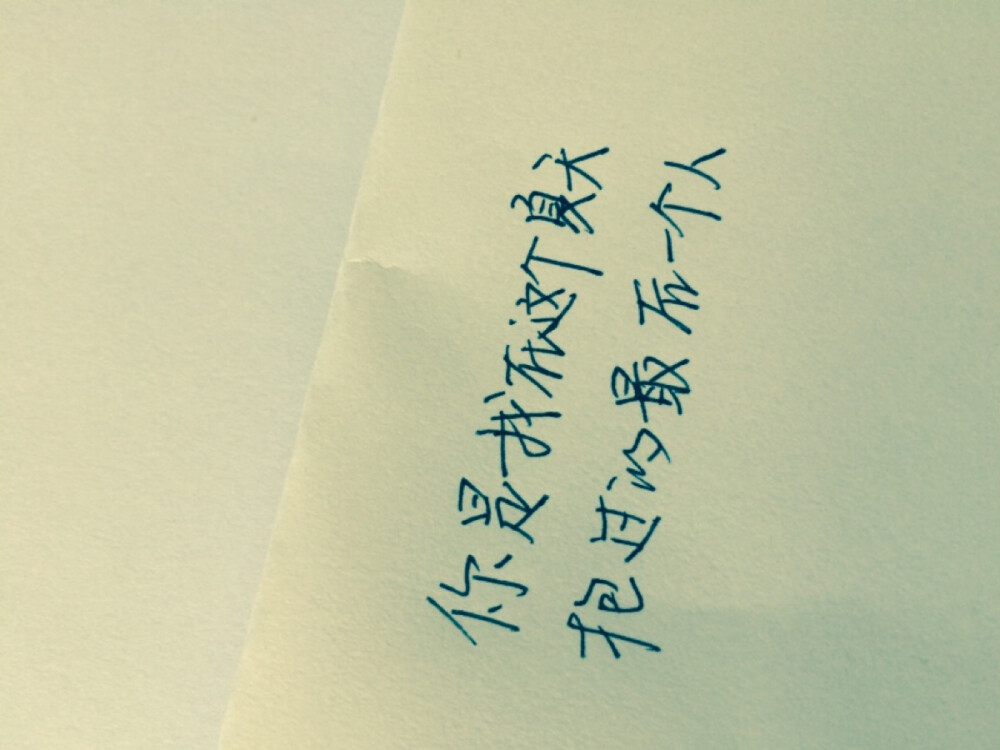 你是我在这个夏天
抱过的最后一个人